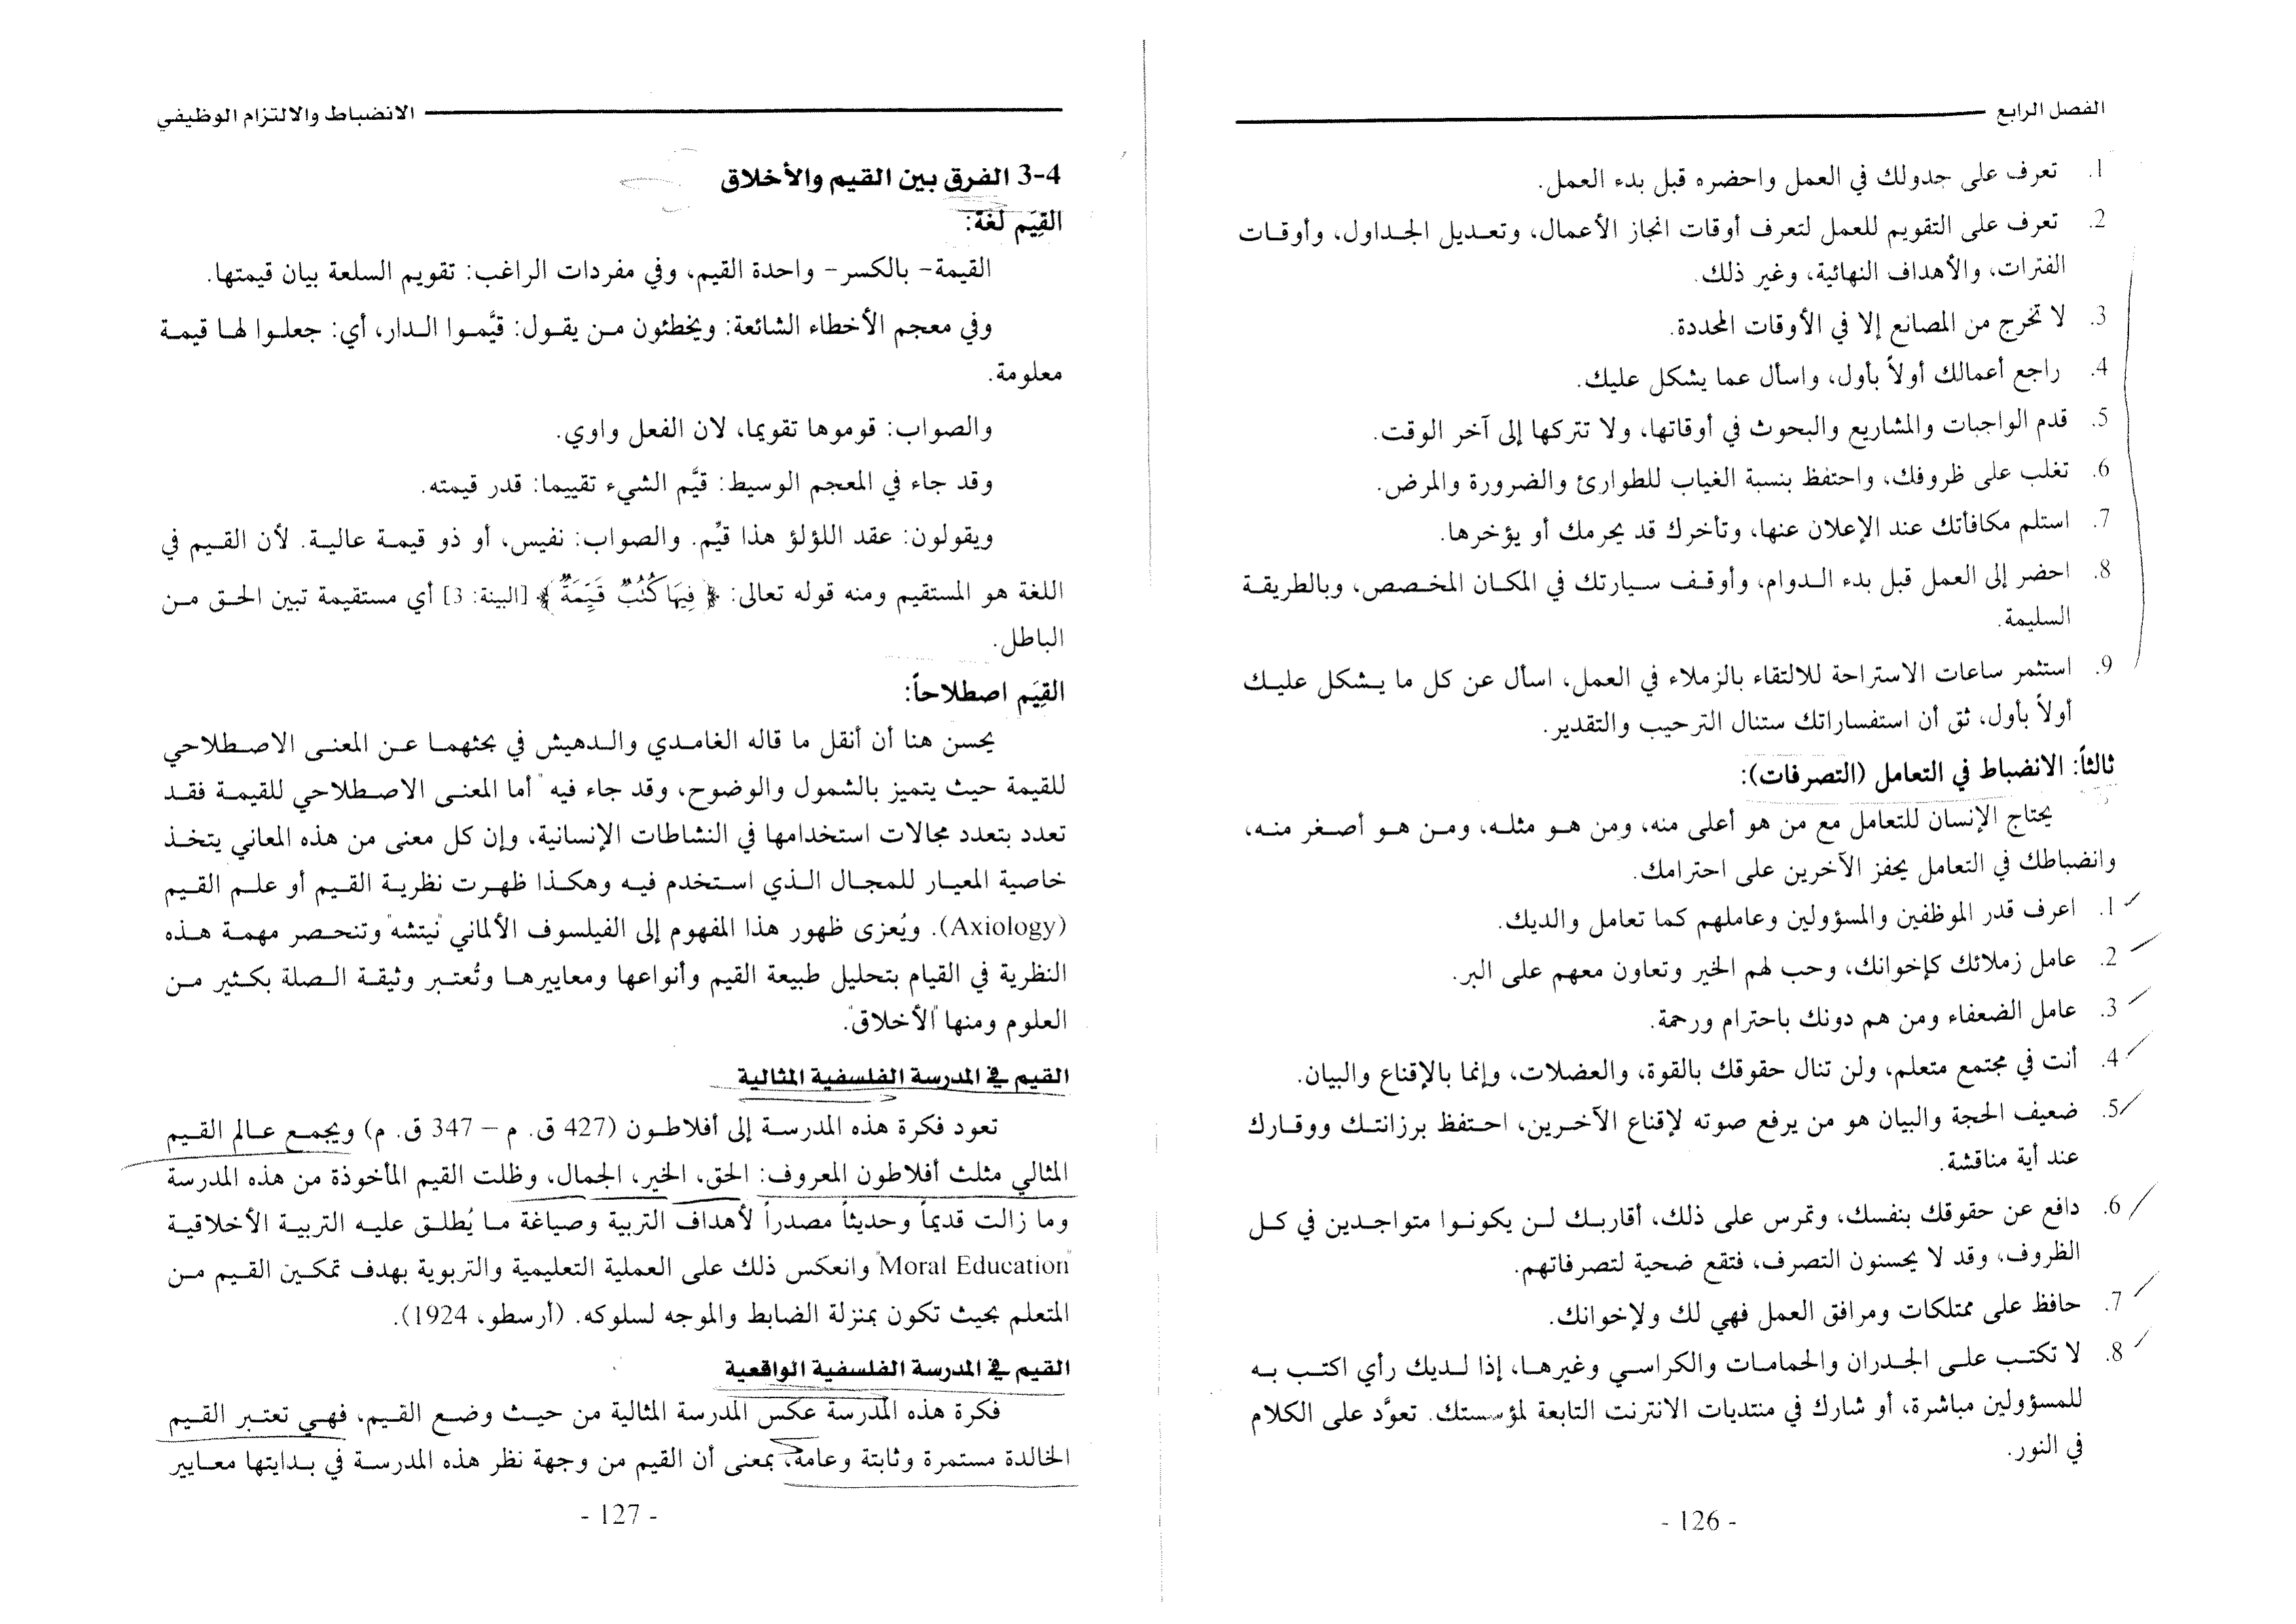 الفصل الرابع
1. تعرف على جدولك في العمل واحضره قبل بدء العمل.
2. تعرف على التقويم للعمل لتعرف أوقات انجاز الأعمال، وتعديل الجداول، وأوقات
الفترات، والأهداف النهائية، وغير ذلك.
3. لا تخرج من المصانع إلا في الأوقات المحددة.
4. راجع أعمالك أولاً بأول، واسأل عما يشكل عليك.
5. قدم الواجبات والمشاريع والبحوث في أوقاتها، ولا تتركها إلى آخر الوقت.
6. تغلب على ظروفك، واحتفظ بنسبة الغياب للطوارئ والضرورة والمرض.
7. استلم مكافأتك عند الإعلان عنها، وتأخرك قد يحرمك أو يؤخرها.
8. احضر إلى العمل قبل بدء الدوام، وأوقف سيارتك في المكان المخصص، وبالطريقة
السليمة.
9. استثمر ساعات الاستراحة للالتقاء بالزملاء في العمل، اسأل عن كل ما يشكل عليك
أولاً بأول، ثق أن استفساراتك ستنال الترحيب والتقدير.
ثالثاً: الانضباط في التعامل (التصرفات):
يحتاج الإنسان للتعامل مع من هو أعلى منه، ومن هو مثله، ومن هو أصغر منه،
وانضباطك في التعامل يحفز الآخرين على احترامك.
1. اعرف قدر الموظفين والمسؤولين وعاملهم كما تعامل والديك.
2. عامل زملائك كإخوانك، وحب لهم الخير وتعاون معهم على البر.
3. عامل الضعفاء ومن هم دونك باحترام ورحمة.
4. أنت في مجتمع متعلم، ولن تنال حقوقك بالقوة، والعضلات، وإنما بالإقناع والبيان.
5. ضعيف الحجة والبيان هو من يرفع صوته لإقناع الآخرين، احتفظ برزانتك ووقارك
عند أية مناقشة.
6. دافع عن حقوقك بنفسك، وتمرس على ذلك، أقاربك لن يكونوا متواجدين في كل
الظروف، وقد لا يحسنون التصرف، فتقع ضحية لتصرفاتهم.
7. حافظ على ممتلكات ومرافق العمل فهي لك ولإخوانك.
8. لا تكتب على الجدران والحمامات والكراسي وغيرها، إذا لديك رأي اكتب به
للمسؤولين مباشرة، أو شارك في منتديات الانترنت التابعة لمؤسستك. تعوَّد على الكلام
في النور.
- 126 -
الانضباط والالتزام الوظيفي
3-4 الفرق بين القيم والأخلاق
القِيَم لغة:
القيمة- بالكسر- واحدة القيم، وفي مفردات الراغب: تقويم السلعة بيان قيمتها.
وفي معجم الأخطاء الشائعة: ويخطئون من يقول: قيَّموا الدار، أي: جعلوا لها قيمة
معلومة.
والصواب: قوموها تقويما، لان الفعل واوي.
وقد جاء في المعجم الوسيط: قيَّم الشيء تقييما: قدر قيمته.
ويقولون: عقد اللؤلؤ هذا قيِّم. والصواب: نفيس، أو ذو قيمة عالية. لأن القيم في
اللغة هو المستقيم ومنه قوله تعالى: ﴿ فِيهَا كُتُبٌ قَيِّمَةٌ ﴾ [البينة: 3] أي مستقيمة تبين الحق من
الباطل.
القِيَم اصطلاحاً:
يحسن هنا أن أنقل ما قاله الغامدي والدهيش في بحثهما عن المعنى الاصطلاحي
للقيمة حيث يتميز بالشمول والوضوح، وقد جاء فيه "أما المعنى الاصطلاحي للقيمة فقد
تعدد بتعدد مجالات استخدامها في النشاطات الإنسانية، وإن كل معنى من هذه المعاني يتخذ
خاصية المعيار للمجال الذي استخدم فيه وهكذا ظهرت نظرية القيم أو علم القيم
(Axiology). ويُعزى ظهور هذا المفهوم إلى الفيلسوف الألماني "نيتشه" وتنحصر مهمة هذه
النظرية في القيام بتحليل طبيعة القيم وأنواعها ومعاييرها وتُعتبر وثيقة الصلة بكثير من
العلوم ومنها "الأخلاق".
القيم في المدرسة الفلسفية المثالية
تعود فكرة هذه المدرسة إلى أفلاطون (427 ق. م – 347 ق. م) ويجمع عالم القيم
المثالي مثلث أفلاطون المعروف: الحق، الخير، الجمال، وظلت القيم المأخوذة من هذه المدرسة
وما زالت قديماً وحديثاً مصدراً لأهداف التربية وصياغة ما يُطلق عليه التربية الأخلاقية
"Moral Education" وانعكس ذلك على العملية التعليمية والتربوية بهدف تمكين القيم من
المتعلم بحيث تكون بمنزلة الضابط والموجه لسلوكه. (أرسطو، 1924).
القيم في المدرسة الفلسفية الواقعية
فكرة هذه المدرسة عكس المدرسة المثالية من حيث وضع القيم، فهي تعتبر القيم
الخالدة مستمرة وثابتة وعامة، بمعنى أن القيم من وجهة نظر هذه المدرسة في بدايتها معايير
- 127 -